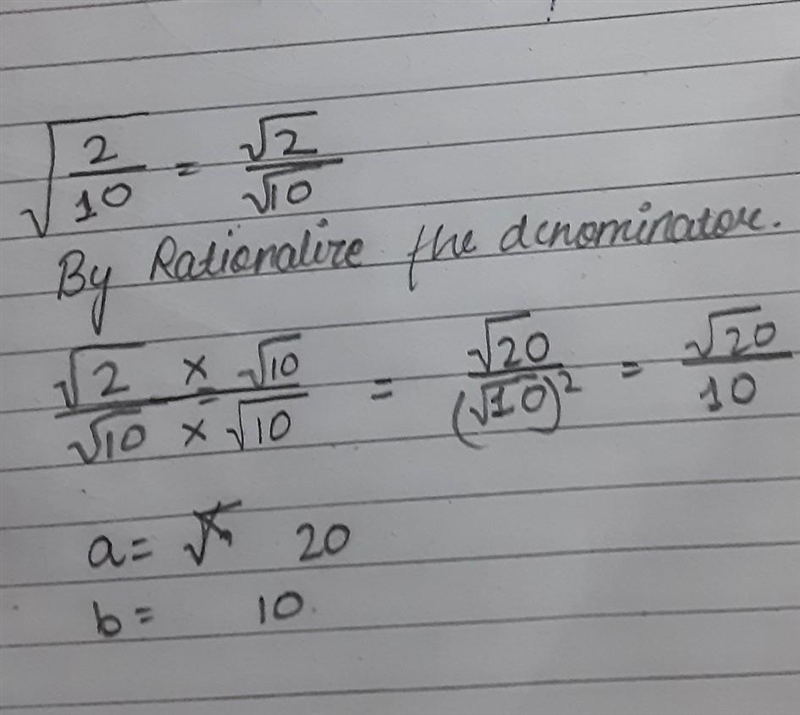 √(2/10) = √2/√10
By Rationalize the denominator.
(√2 × √10)/(√10 × √10) = √20/(√10)² = √20/10
a = 20
b = 10.